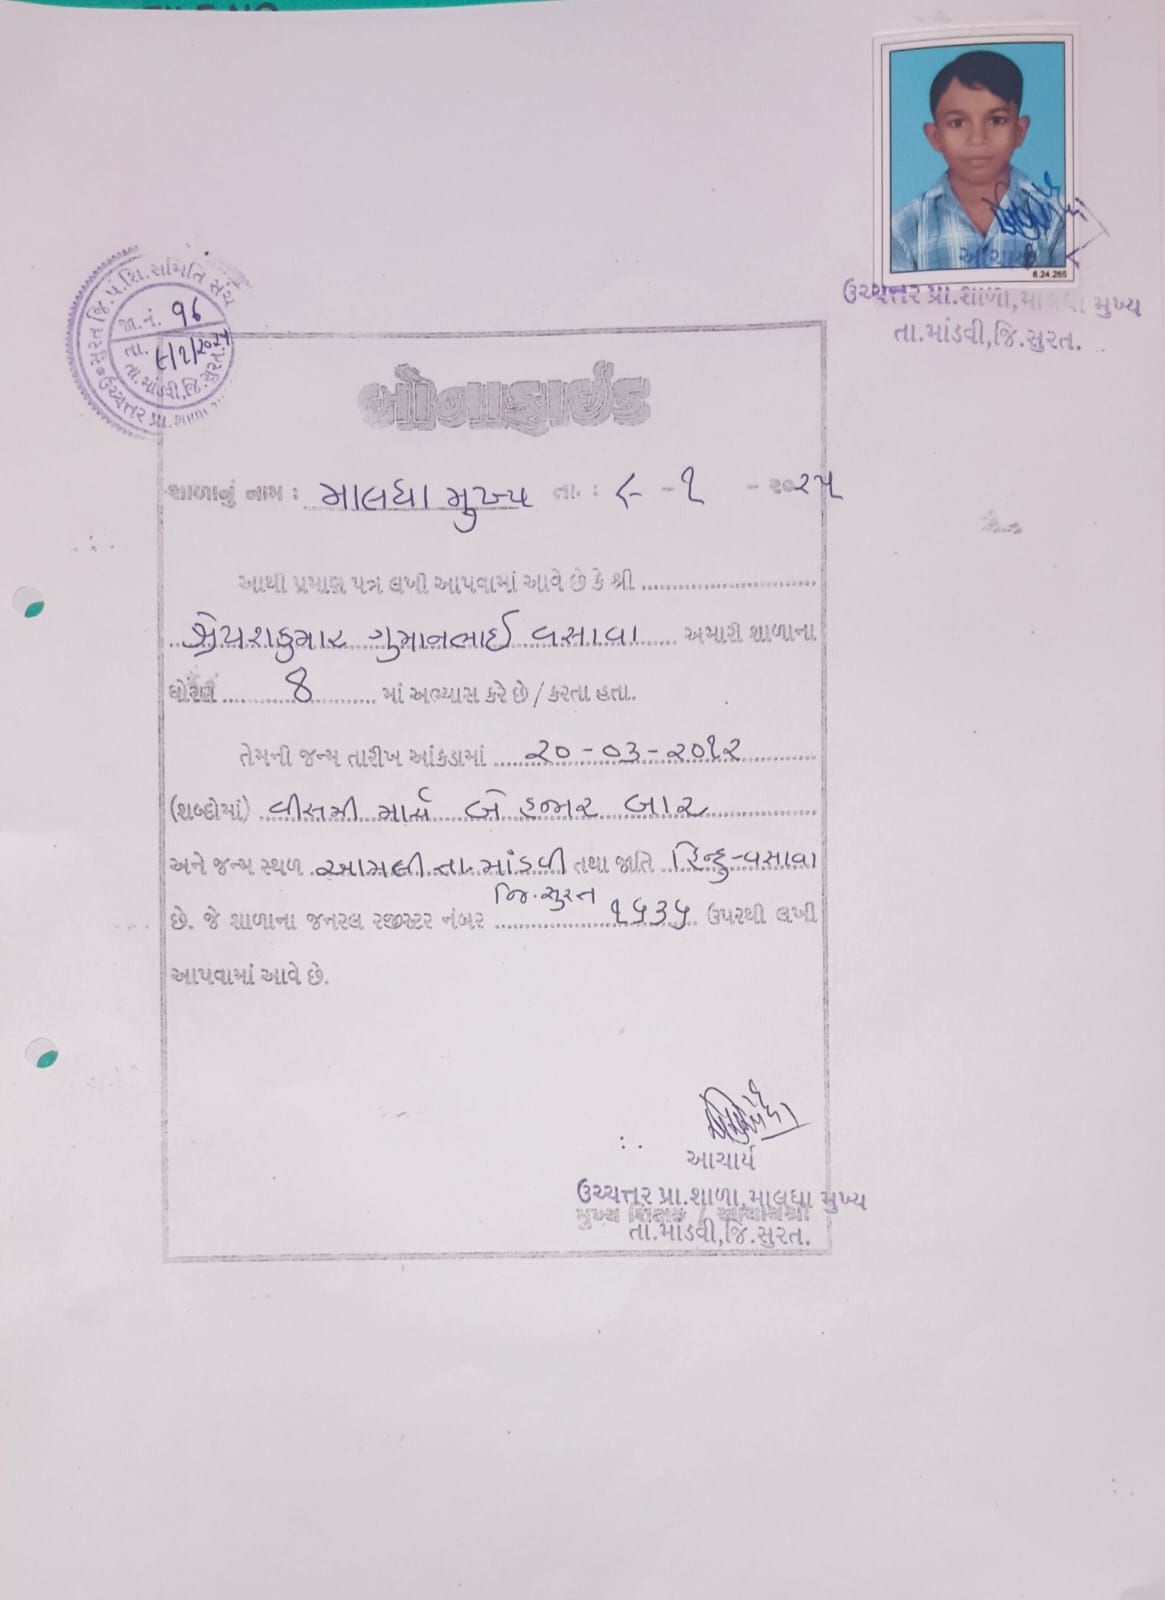 FILE NO
6.24.265
આચાર્ય
ઉચ્ચત્તર પ્રા.શાળા,માલધા મુખ્ય
તા.માંડવી,જિ.સુરત.
સુરત જિ.પં.શિ.સમિતિ સંચ
ઉચ્ચત્તર પ્રા.શાળા
જા.નં. ૧૬
તા.
તા.માંડવી,જિ.સુરત.
બોનાફાઈડ
શાળાનું નામ : માલધા મુખ્ય તા. : ૯ - ૧ - ૨૦૨૫
આથી પ્રમાણ પત્ર લખી આપવામાં આવે છે કે શ્રી
ગુમાનભાઈ વસાવા અમારી શાળાના
ધોરણ 8 માં અભ્યાસ કરે છે / કરતા હતા.
તેમની જન્મ તારીખ આંકડામાં ૨૦-૦૩-૨૦૧૨
(શબ્દોમાં) વીસમી માર્ચ બે હજાર બાર
અને જન્મ સ્થળ આમલી તા. માંડવી તથા જાતિ હિન્દુ-વસાવા
જિ. સુરત
છે. જે શાળાના જનરલ રજીસ્ટર નંબર ૧૫૩૫ ઉપરથી લખી
આપવામાં આવે છે.
આચાર્ય
ઉચ્ચત્તર પ્રા.શાળા,માલધા મુખ્ય
મુખ્ય શિક્ષક / આચાર્યશ્રી
તા.માંડવી,જિ.સુરત.